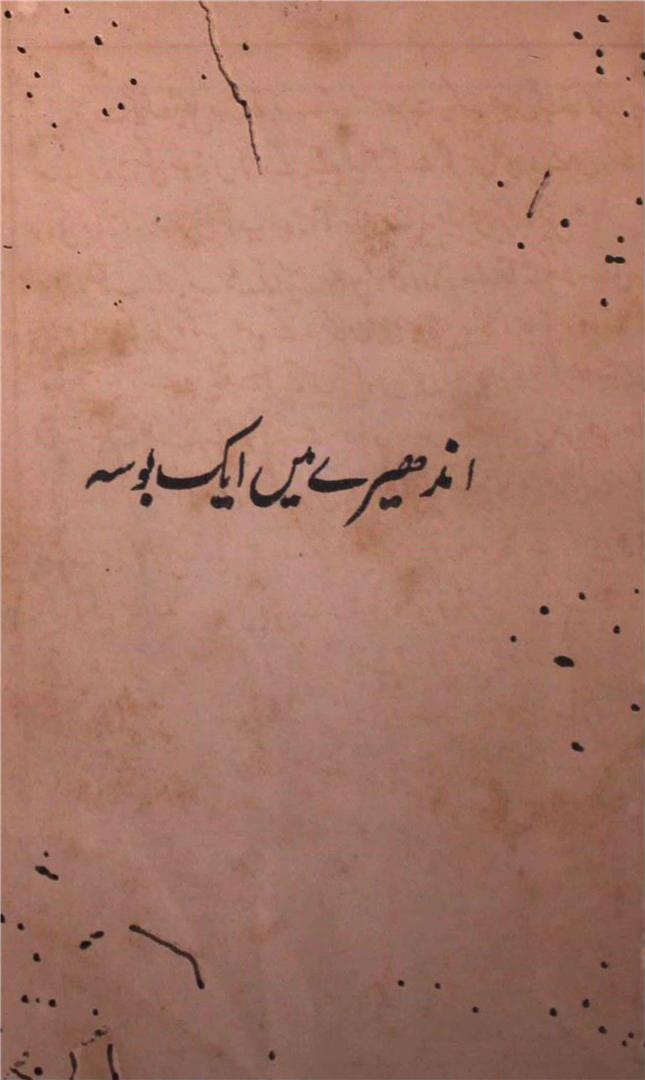 اندھیرے میں ایک بوسہ